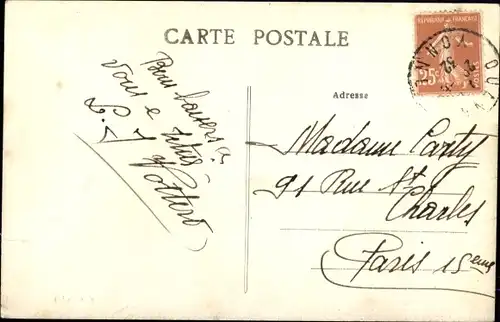 CARTE POSTALE
REPUBLIQUE FRANÇAISE
25c
Bons baisers à
vous e
Adresse
Madame Carty
91 Rue St
Charles
Paris 15eme